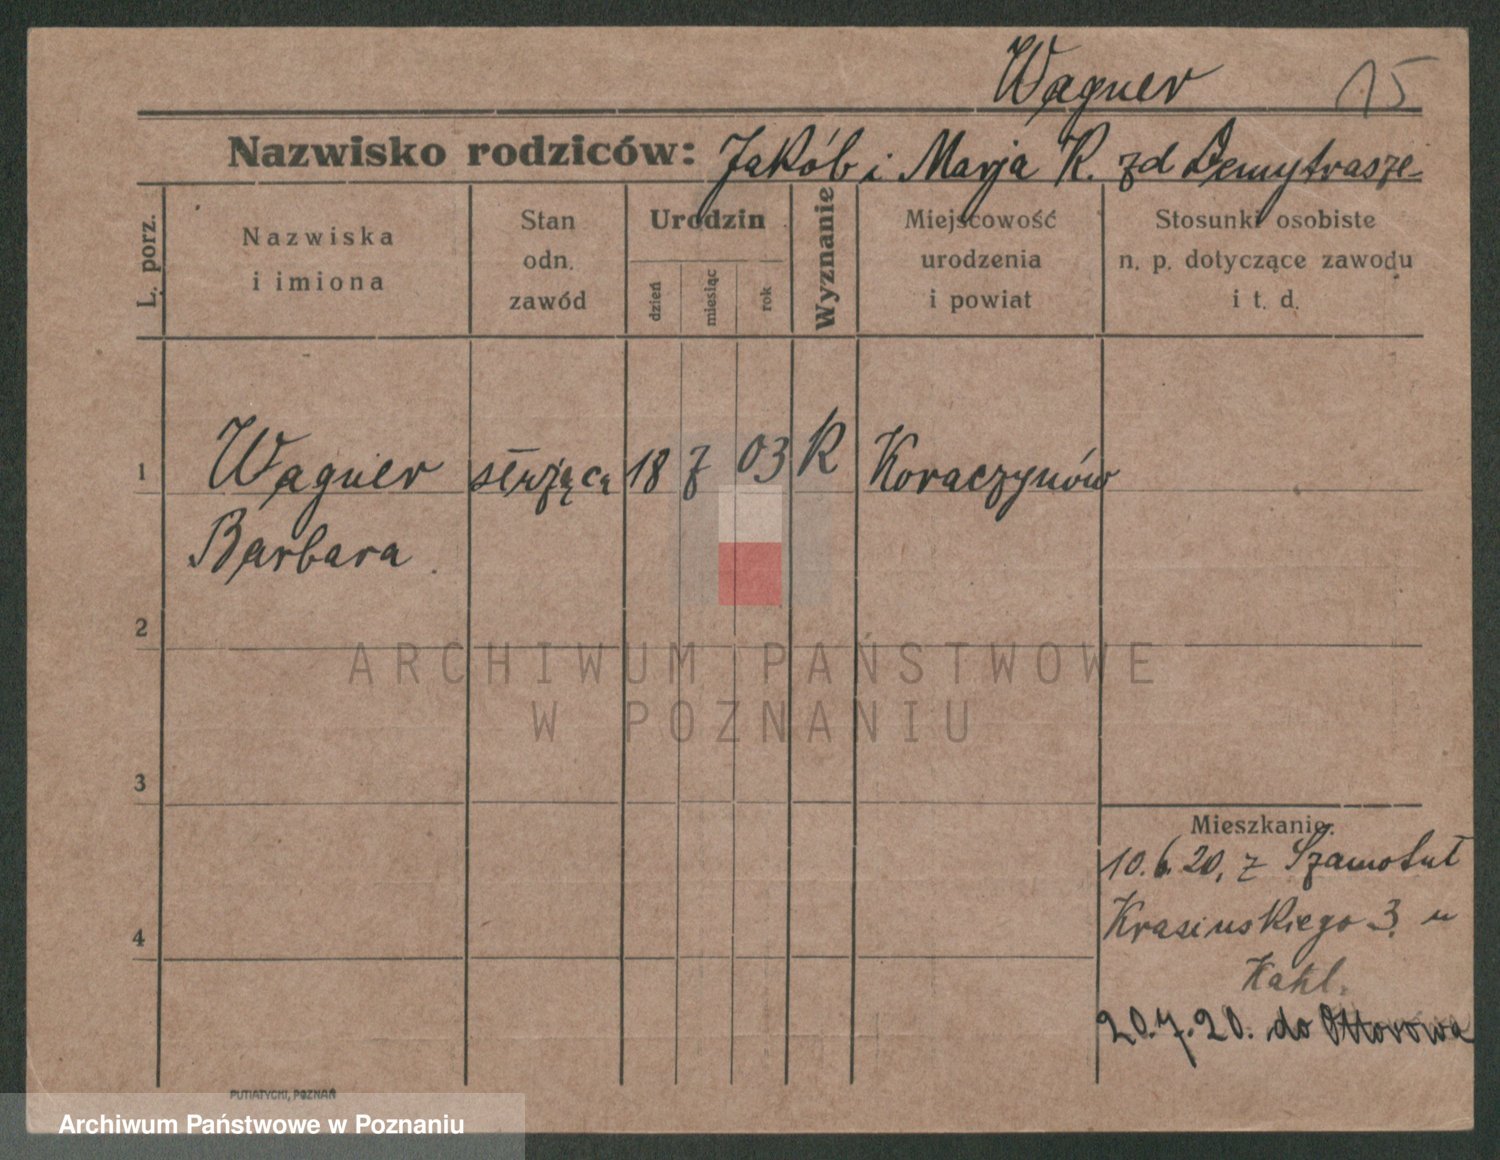 Wagner 15
Nazwisko rodziców: Jakób i Marja R. zd Demytrasze-
L. porz.
Nazwiska
i imiona
Stan
odn.
zawód
Urodzin
dzień
miesiąc
rok
Wyznanie
Miejscowość
urodzenia
i powiat
Stosunki osobiste
n. p. dotyczące zawodu
i t. d.
1 Wagner służąca 18 7 03 R Koraczynów
Barbara
2
3
4
Mieszkanie.
10.6.20, z Szamotuł
Krasińskiego 3. u
Kahl.
20.7.20. do Ottorowa
PUTIATYCKI, POZNAŃ
ARCHIWUM PAŃSTWOWE
W POZNANIU
Archiwum Państwowe w Poznaniu